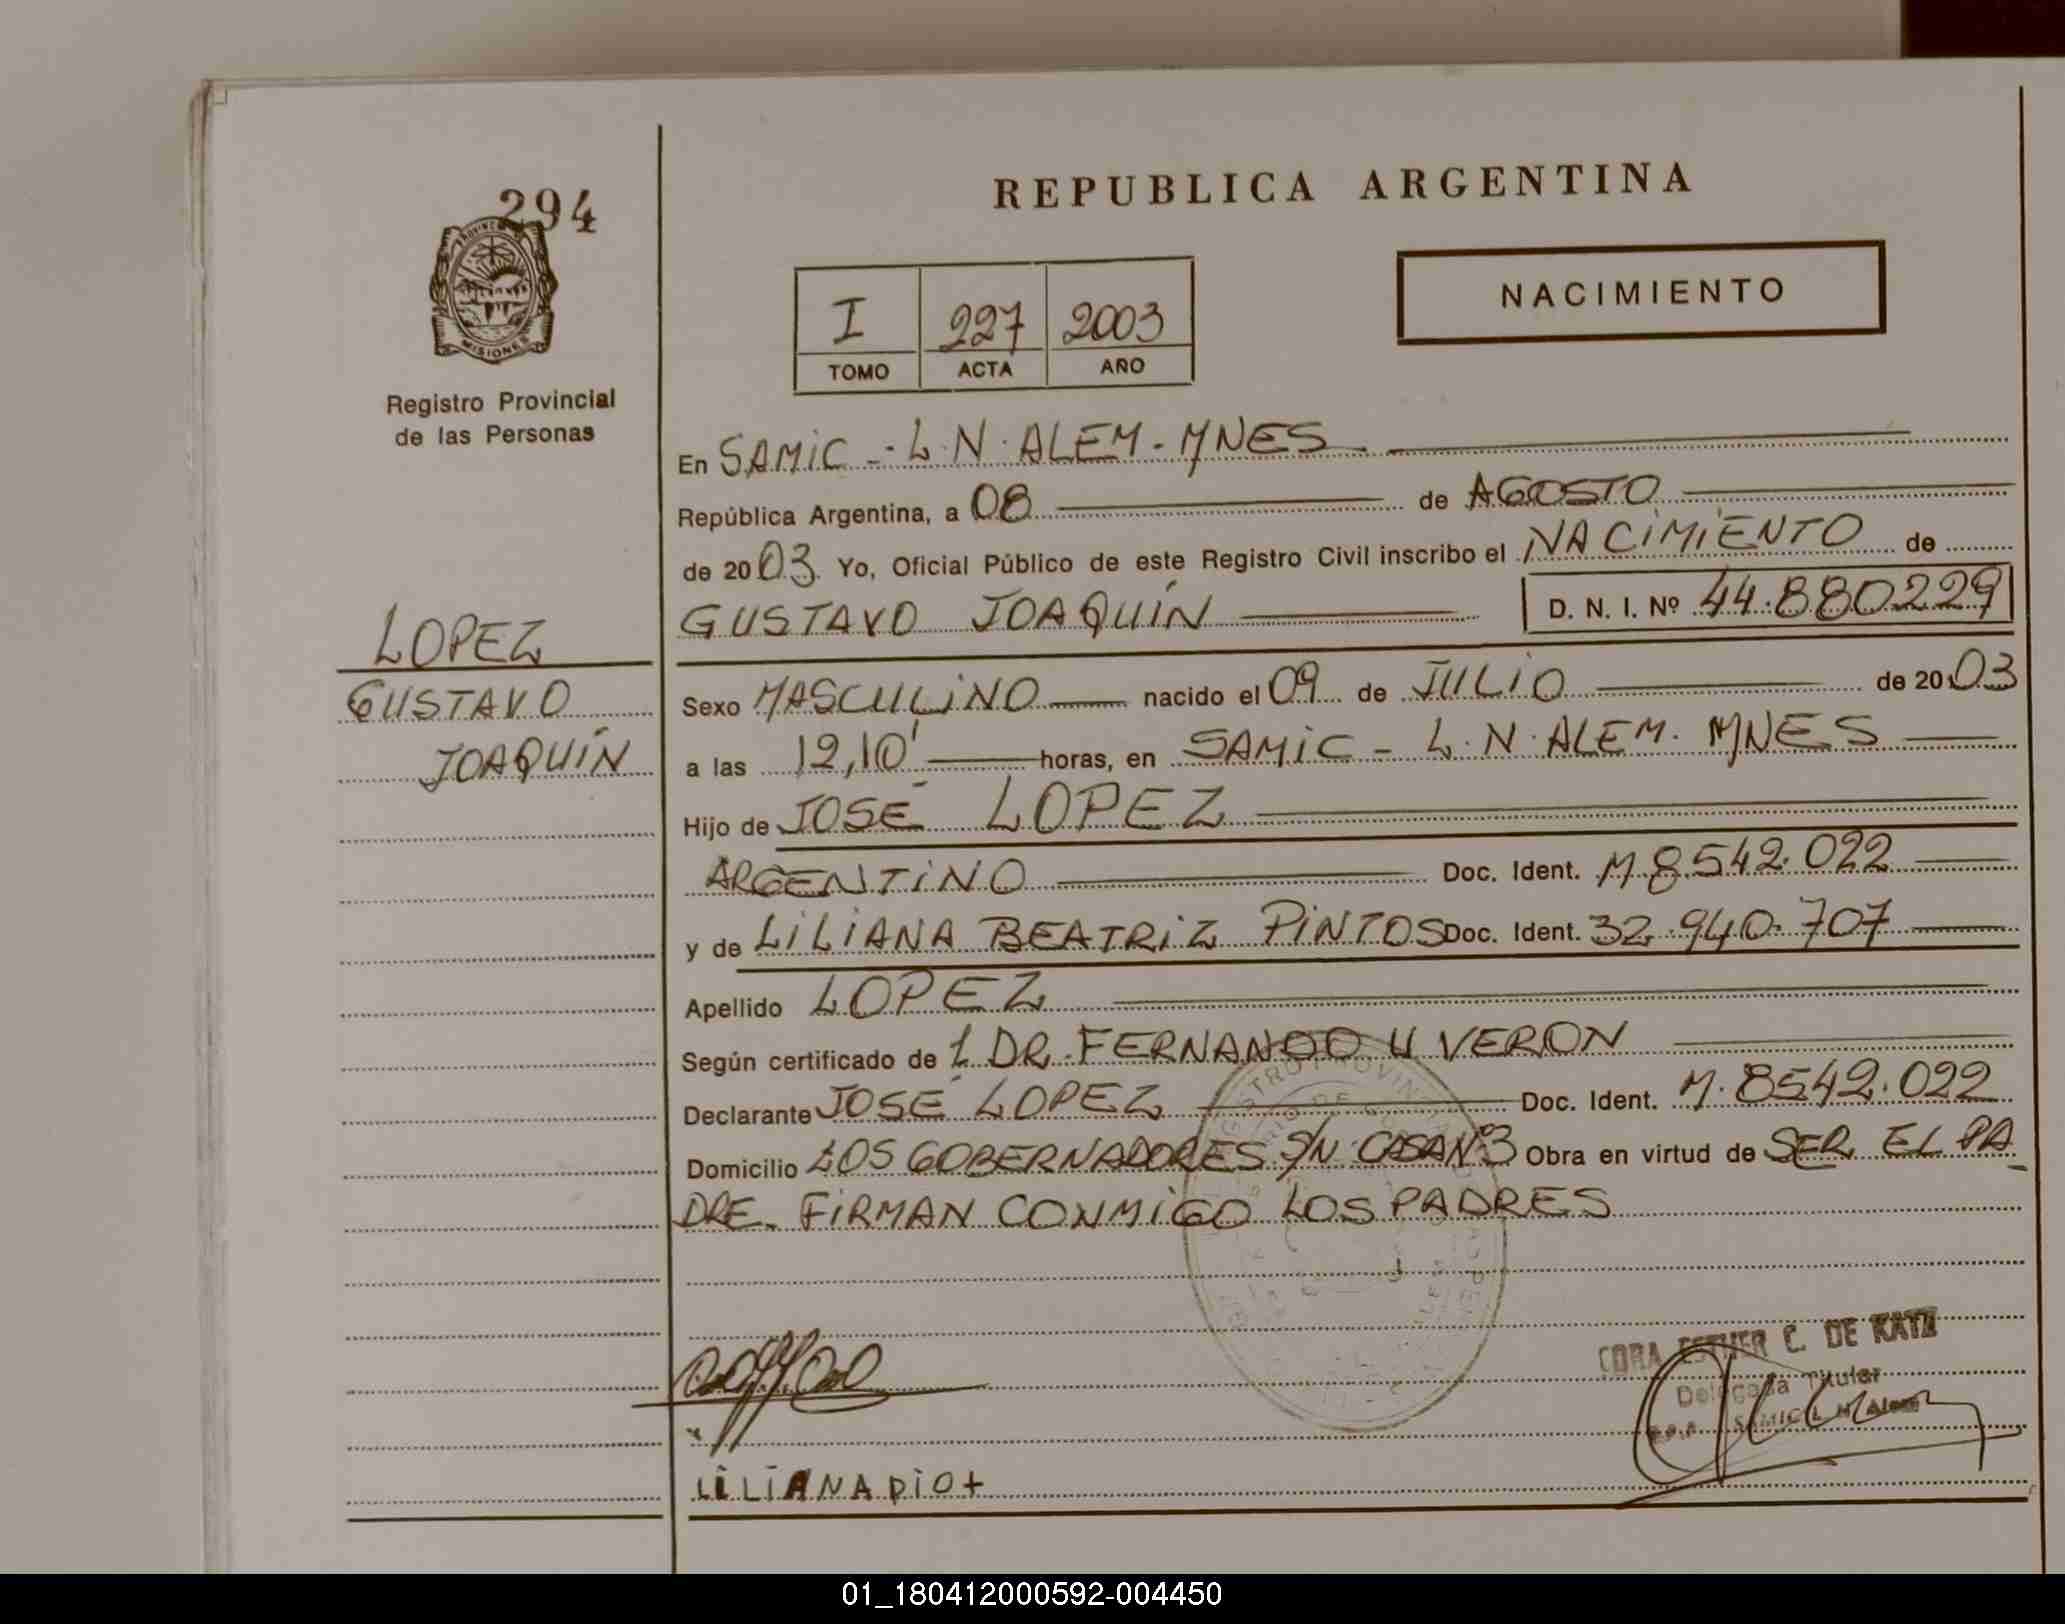 294
PROVINCIA
MISIONES
Registro Provincial
de las Personas
LOPEZ
GUSTAVO
JOAQUÍN
REPUBLICA ARGENTINA
I 227 2003
TOMO ACTA AÑO
NACIMIENTO
En SAMIC - L.N. ALEM - MNES
República Argentina, a 08 de AGOSTO
de 2003 Yo, Oficial Público de este Registro Civil inscribo el NACIMIENTO de
GUSTAVO JOAQUÍN D. N. I. Nº 44.880229
Sexo MASCULINO nacido el 09 de JULIO de 2003
a las 12,10' horas, en SAMIC - L.N. ALEM. MNES
Hijo de JOSÉ LOPEZ
ARGENTINO Doc. Ident. M 8542.022
y de LILIANA BEATRIZ PINTOS Doc. Ident. 32.940.707
Apellido LOPEZ
Según certificado de 1 DR. FERNANDO U VERON
Declarante JOSÉ LOPEZ Doc. Ident. M. 8542.022
Domicilio LOS GOBERNADORES S/N CASA Nº3 Obra en virtud de SER EL PA
DRE. FIRMAN CONMIGO LOS PADRES
CORA ESTHER C. DE KATZ
Delegada Titular
SAMIC L N Alem
LILIANA PiO+
01_180412000592-004450